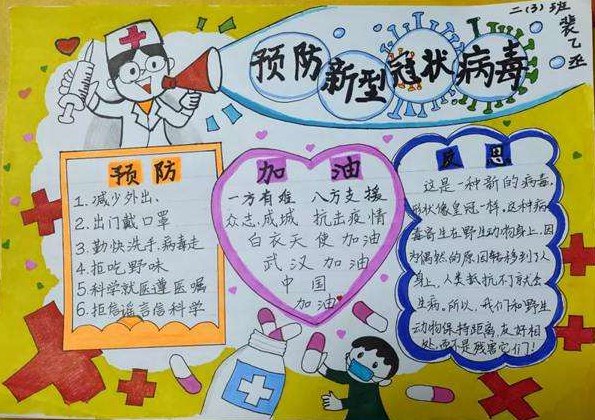 二(3)班
裴乙丞
预防新型冠状病毒
预防
1.减少外出、
2.出门戴口罩
3.勤快洗手,病毒走
4.拒吃野味
5.科学就医遵医嘱
6.拒信谣言信科学
加油
一方有难 八方支援
众志成城 抗击疫情
白衣天使 加油
武汉 加油
中国
加油
反思
这是一种新的病毒,
形状像皇冠一样,这种病
毒寄生在野生动物身上,因
为偶然的原因转移到了人
身上,人类抵抗不了就会
生病。所以,我们和野生
动物保持距离,友好相
处,而不是残害它们!